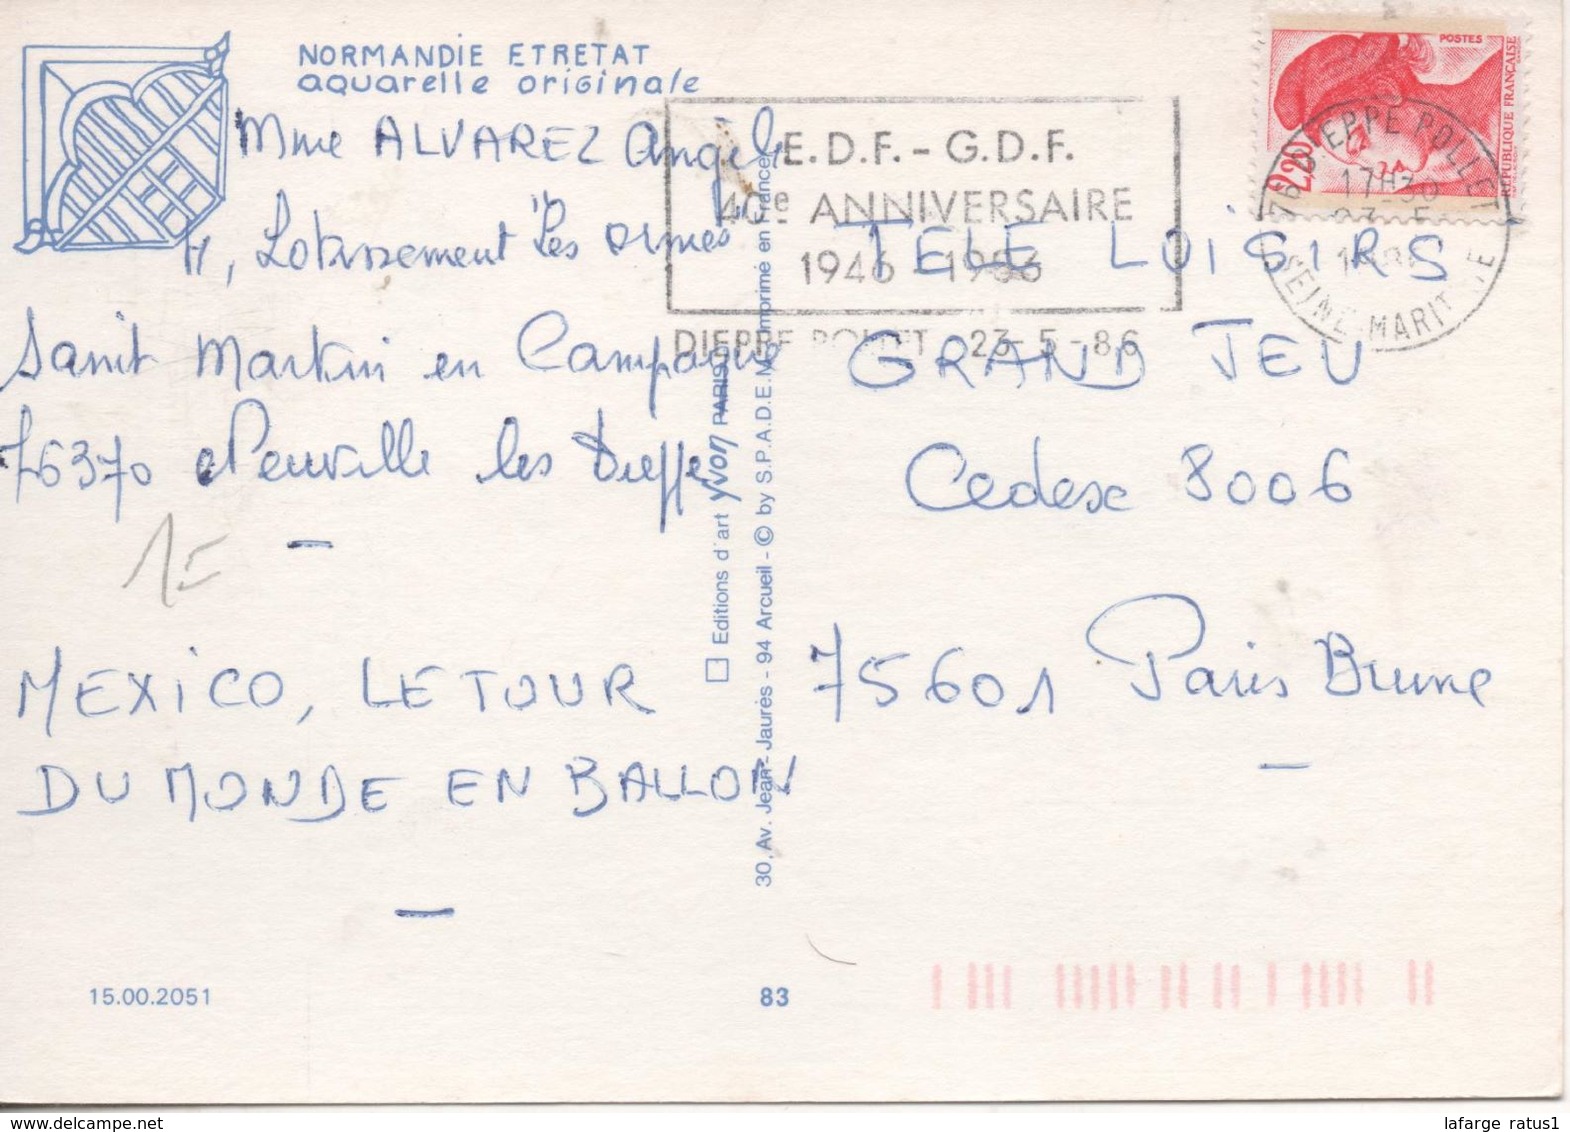 NORMANDIE ETRETAT
aquarelle originale
Mme ALVAREZ Angèle
11, Lotissement "Les Ormes"
Saint Martin en Campagne
76370 Neuville les Dieppe
15
MEXICO, LE TOUR
DU MONDE EN BALLON
15.00.2051
Editions d'art yvon PARIS
30, Av. Jean-Jaurès - 94 Arcueil - © by S.P.A.D.E.M. Imprimé en France
83
E.D.F. - G.D.F.
40e ANNIVERSAIRE
1946 - 1986
DIEPPE POLLET 23-5-86
POSTES
2,20
REPUBLIQUE FRANÇAISE
76 DIEPPE POLLET
17H30
23-5
SEINE-MARITIME
TELE LOISIRS
GRAND JEU
Cedex 8006
75601 Paris Brune
lafarge ratus1